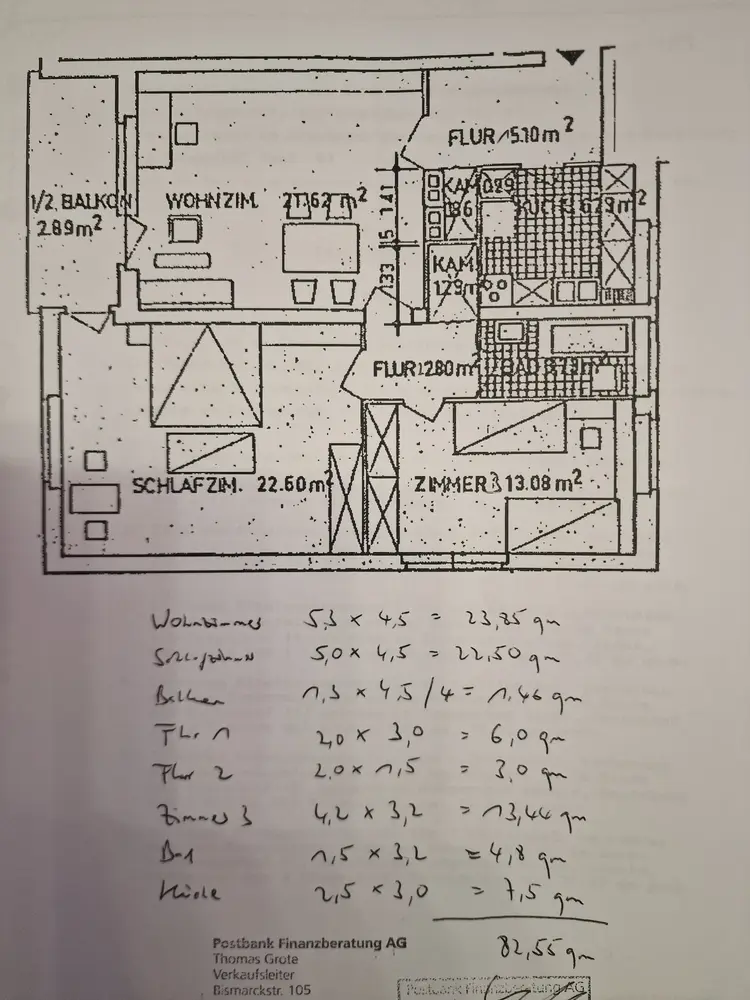 FLUR 1 5.10 m²
1/2 BALKON
2.89 m²
WOHNZIM. 21.62 m²
1.41
15
1.33
KAM 0.29
1.86
KÜCHE 6.29 m²
KAM
1.29 m²
FLUR 2.80 m²
BAD 3.73 m²
SCHLAFZIM. 22.60 m²
ZIMMER 3 13.08 m²
Wohnzimmer 5,3 × 4,5 = 23,85 qm
Schlafzimmer 5,0 × 4,5 = 22,50 qm
Balkon 1,3 × 4,5 / 4 = 1,46 qm
Flur 1 2,0 × 3,0 = 6,0 qm
Flur 2 2,0 × 1,5 = 3,0 qm
Zimmer 3 4,2 × 3,2 = 13,44 qm
Bad 1,5 × 3,2 = 4,8 qm
Küche 2,5 × 3,0 = 7,5 qm
82,55 qm
Postbank Finanzberatung AG
Thomas Grote
Verkaufsleiter
Bismarckstr. 105
Postbank Finanzberatung AG